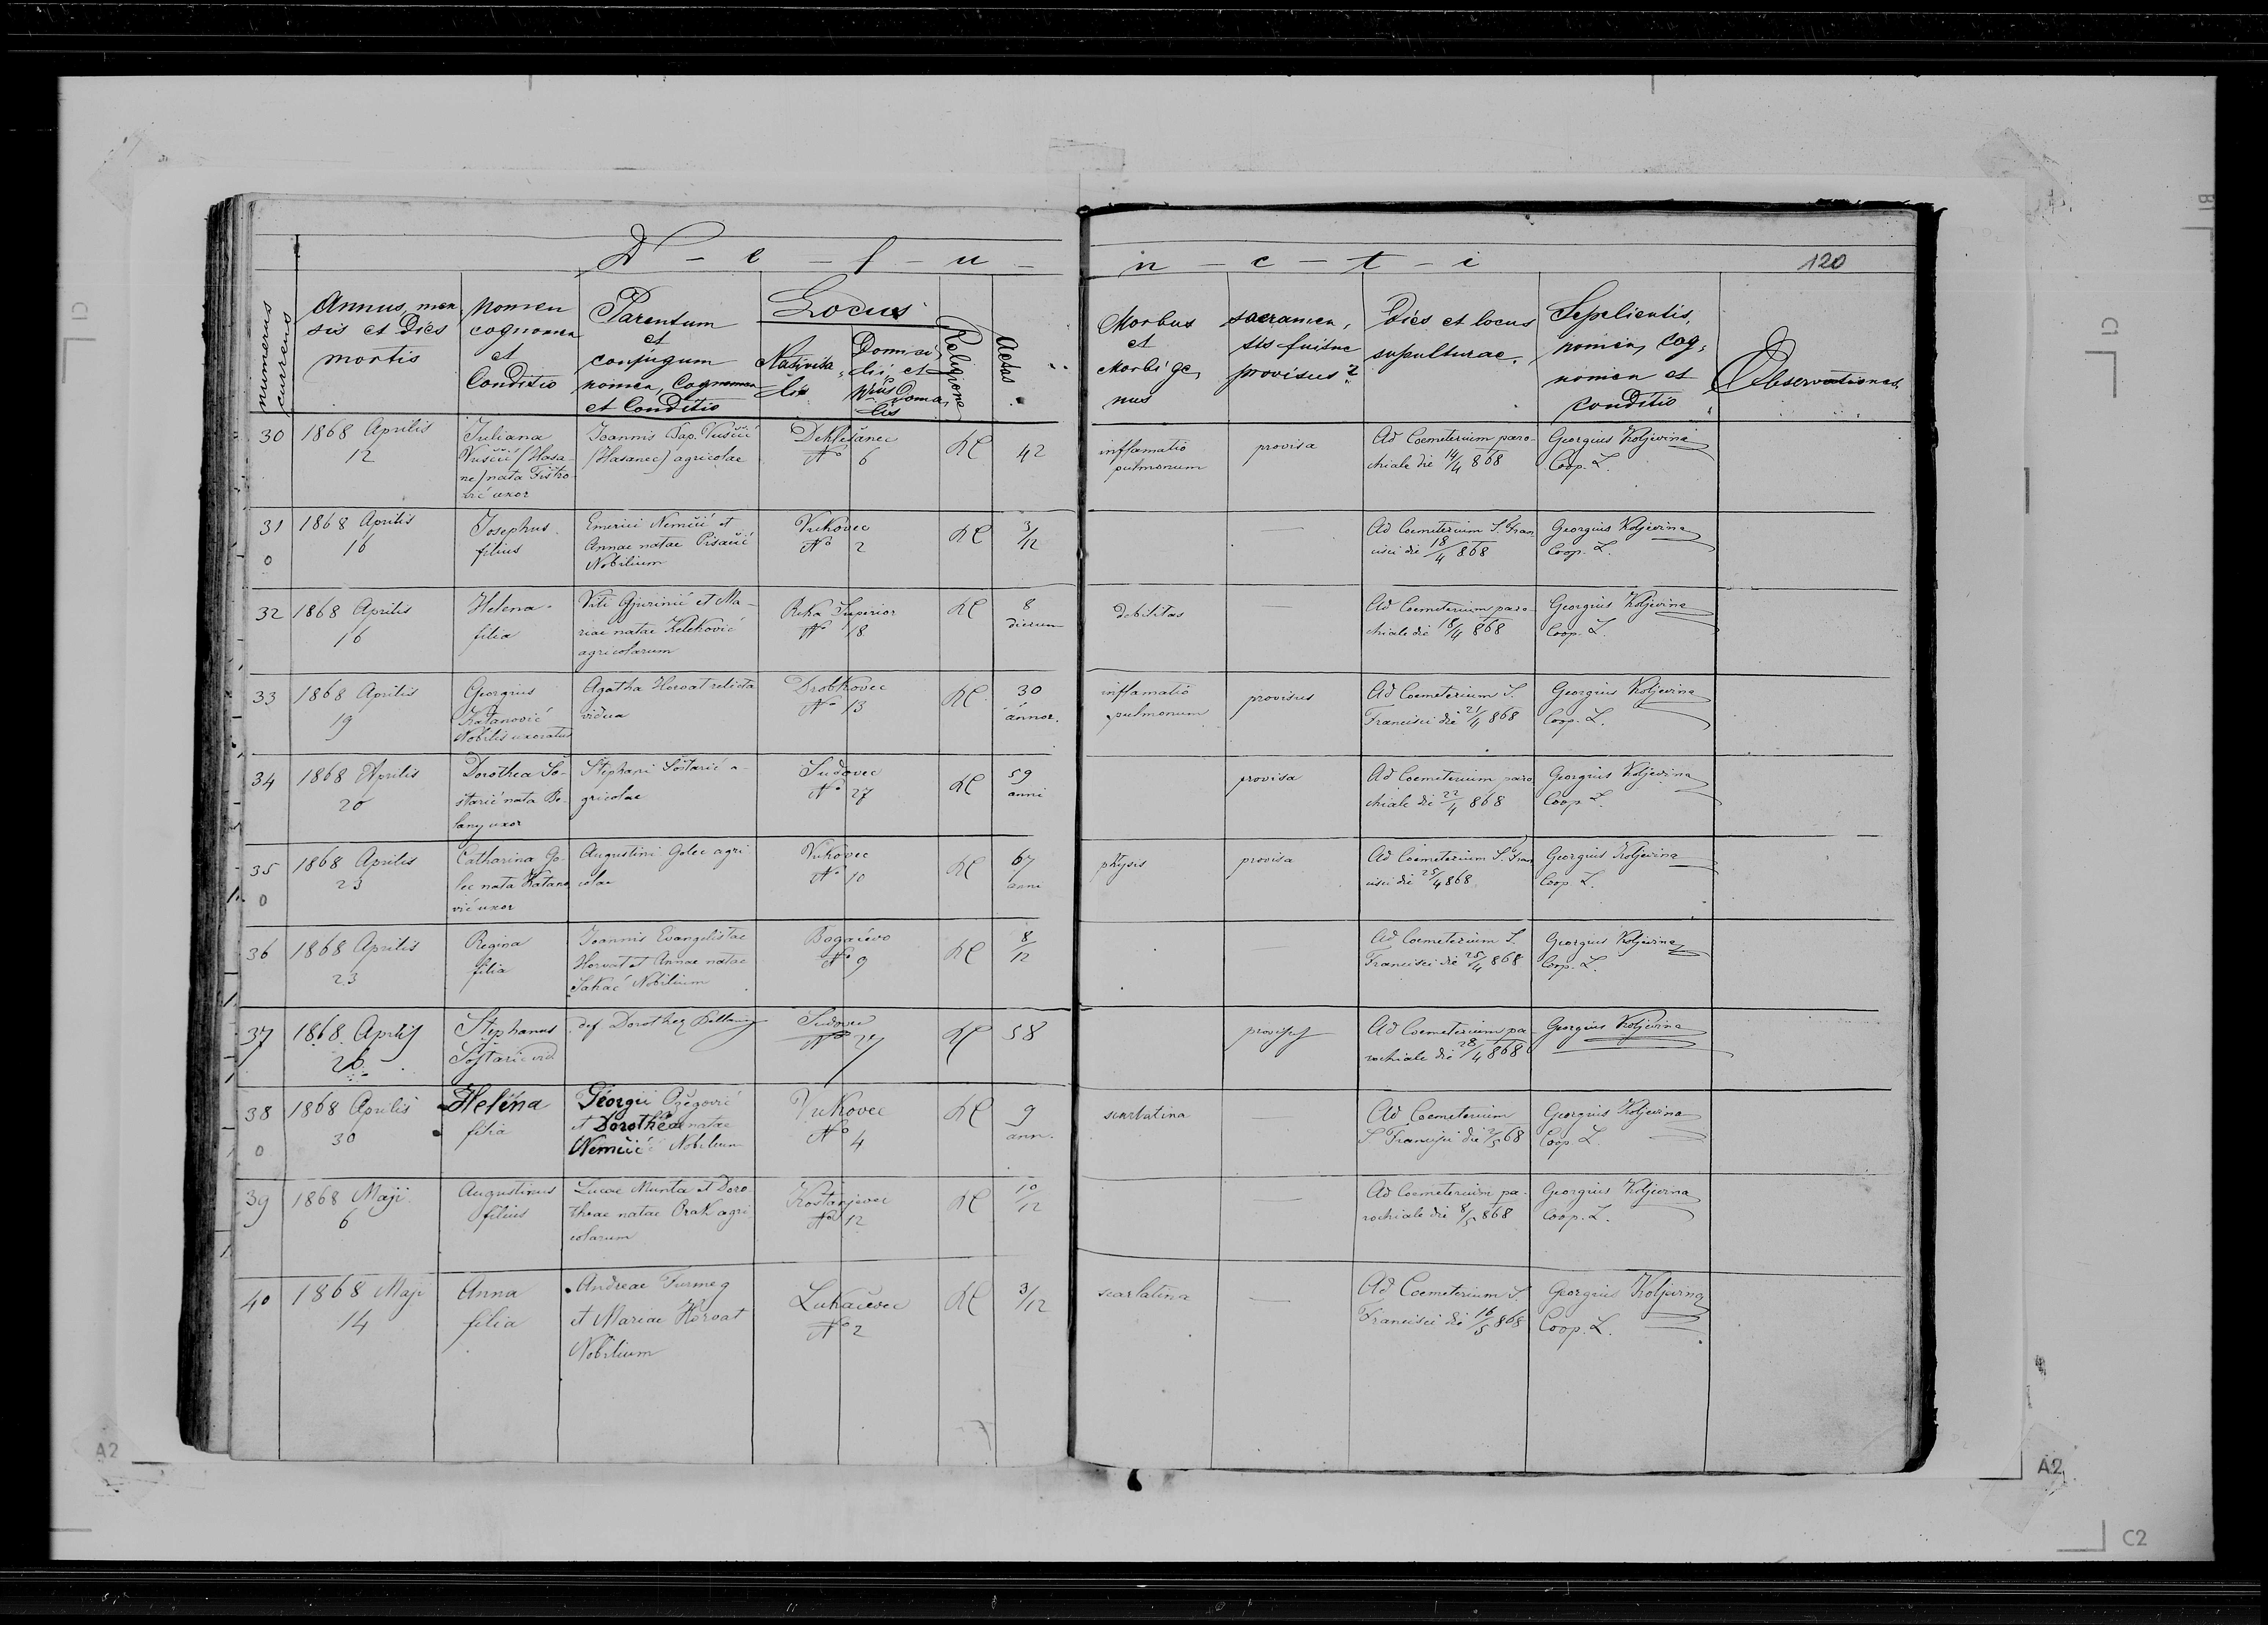 D - e - f - u - n - c - t - i
120
numerus currens
Annus, men
sis et Dies
mortis
Nomen
cognomen
et
Conditio
Parentum
et
conjugum
nomen, Cognomen
et Conditio
Locus
Nativita,
tis
Domici,
lii, et
Nrus Doma,
lis
Religione
Aetas
Morbus
et
Morbi ge,
nus
sacramen,
tis fuitne
provisus?
Dies et locus
sepulturae.
Sepelientis,
nomen, Cog,
nomen et
Conditio
Observationes
30
1868 Aprilis
12
Juliana
Vuščić (Hasa-
ne) nata Fištro
vić uxor
Joannis Bap. Vuščić
(Hasanec) agricolae
Deklešanec
No 6
RC
42
inflamatio
pulmonum
provisa
Ad Coemeterium paro-
chiale die 14/4 868
Georgius Koljevina
Coop. L.
31
0
1868 Aprilis
16
Josephus
filius
Emerici Nemčić et
Annae natae Pisačić
Nobilium
Vukovec
No 2
RC
3/12
—
Ad Coemeterium S. Fran
cisci die 18/4 868
Georgius Koljevina
Coop. L.
32
1868 Aprilis
16
Helena
filia
Viti Gjurinić et Ma-
riae natae Keleković
agricolarum
Reka Superior
No 18
RC
8
dierum
Debilitas
Ad Coemeterium paro-
chiale die 18/4 868
Georgius Koljevina
Coop. L.
33
1868 Aprilis
19
Georgius
Katanović
Nobilis uxoratus
Agatha Horvat relicta
vidua
Drobkovec
No 13
RC
30
annor.
inflamatio
pulmonum
provisus
Ad Coemeterium S.
Francisci die 21/4 868
Georgius Koljevina
Coop. L.
34
1868 Aprilis
20
Dorothea Šo-
štarić nata Be-
lany uxor
Stephani Šoštarić a-
gricolae
Sudovec
No 27
RC
59
anni
provisa
Ad Coemeterium paro
chiale die 22/4 868
Georgius Koljevina
Coop. L.
35
0
1868 Aprilis
23
Catharina Go-
lec nata Katano
vić uxor
Augustini Golec agri
colae
Vukovec
No 10
RC
67
anni
phtysis
provisa
Ad Coemeterium S. Fran
cisci die 25/4 868
Georgius Koljevina
Coop. L.
36
1868 Aprilis
23
Regina
filia
Joannis Evangelistae
Horvat et Annae natae
Sakač Nobilium
Bogačevo
No 9
RC
8/12
—
Ad Coemeterium S.
Francisci die 25/4 868
Georgius Koljevina
Coop. L.
37
1868 Aprilis
26
Stephanus
Šoštarić vid
def Dorothea Bellany
Sudovec
No 27
RC
58
provisus
Ad Coemeterium pa-
rochiale die 28/4 868
Georgius Koljevina
38
0
1868 Aprilis
30
Helena
filia
Georgii Ožegović
et Dorotheae natae
Nemčić Nobilium
Vukovec
No 4
RC
9
ann.
scarlatina
—
Ad Coemeterium
S Francisci die 2/5 868
Georgius Koljevina
Coop L.
39
1868 Maji
6
Augustinus
filius
Lucae Munta et Doro
theae natae Orak agri
colarum
Kostanjevec
No 12
RC
10/12
—
Ad Coemeterium pa-
rochiale die 8/5 868
Georgius Koljevina
Coop. L.
40
1868 Maji
14
Anna
filia
Andreae Furmeg
et Mariae Horvat
Nobilium
Lukačevec
No 2
RC
3/12
scarlatina
—
Ad Coemeterium S.
Francisci die 16/5 868
Georgius Koljevina
Coop. L.
C1
C1
B1
A2
A2
C2